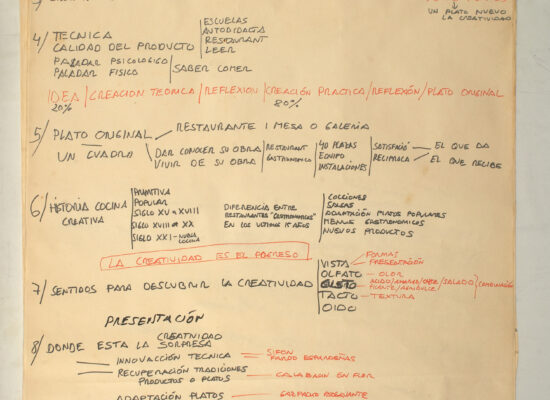 UN PLATO NUEVO
LA CREATIVIDAD
4/ TECNICA
CALIDAD DEL PRODUCTO
ESCUELAS
AUTODIDACTA
RESTAURANT
LEER
PALADAR PSICOLOGICO
PALADAR FISICO
SABER COMER
IDEA / CREACION TEORICA / REFLEXION / CREACIÓN PRACTICA / REFLEXIÓN / PLATO ORIGINAL
20% 80%
5/ PLATO ORIGINAL RESTAURANTE 1 MESA O GALERIA
UN CUADRO
DAR CONOCER SU OBRA
VIVIR DE SU OBRA
RESTAURANT
GASTRONOMICO
40 PLAZAS
EQUIPO
INSTALACIONES
SATISFACIÓ
RECIPROCA
EL QUE DA
EL QUE RECIBE
6/ HISTORIA COCINA
CREATIVA
PRIMITIVA
POPULAR
SIGLO XV a XVIII
SIGLO XVIII a XX
SIGLO XXI - NUEVA
COCINA
DIFERENCIA ENTRE
RESTAURANTES "GASTRONOMICOS"
EN LOS ULTIMOS 15 AÑOS
COCCIONES
SALSAS
ADAPTACIÓN PLATOS POPULARES
MENUS GASTRONOMICOS
NUEVOS PRODUCTOS
LA CREATIVIDAD ES EL PROGRESO
7/ SENTIDOS PARA DESCUBRIR LA CREATIVIDAD
VISTA
FORMAS
PRESENTACIÓN
OLFATO - OLOR
GUSTO
SALADO
TACTO - TEXTURA
OIDO
PRESENTACIÓN
8/ DONDE ESTA LA CREATIVIDAD
SORPRESA
INNOVACCION TECNICA - SIFON
RECUPERACIÓN TRADICIONES
PRODUCTOS O PLATOS
CALABACIN EN FLOR
ADAPTACIÓN PLATOS - GAZPACHO